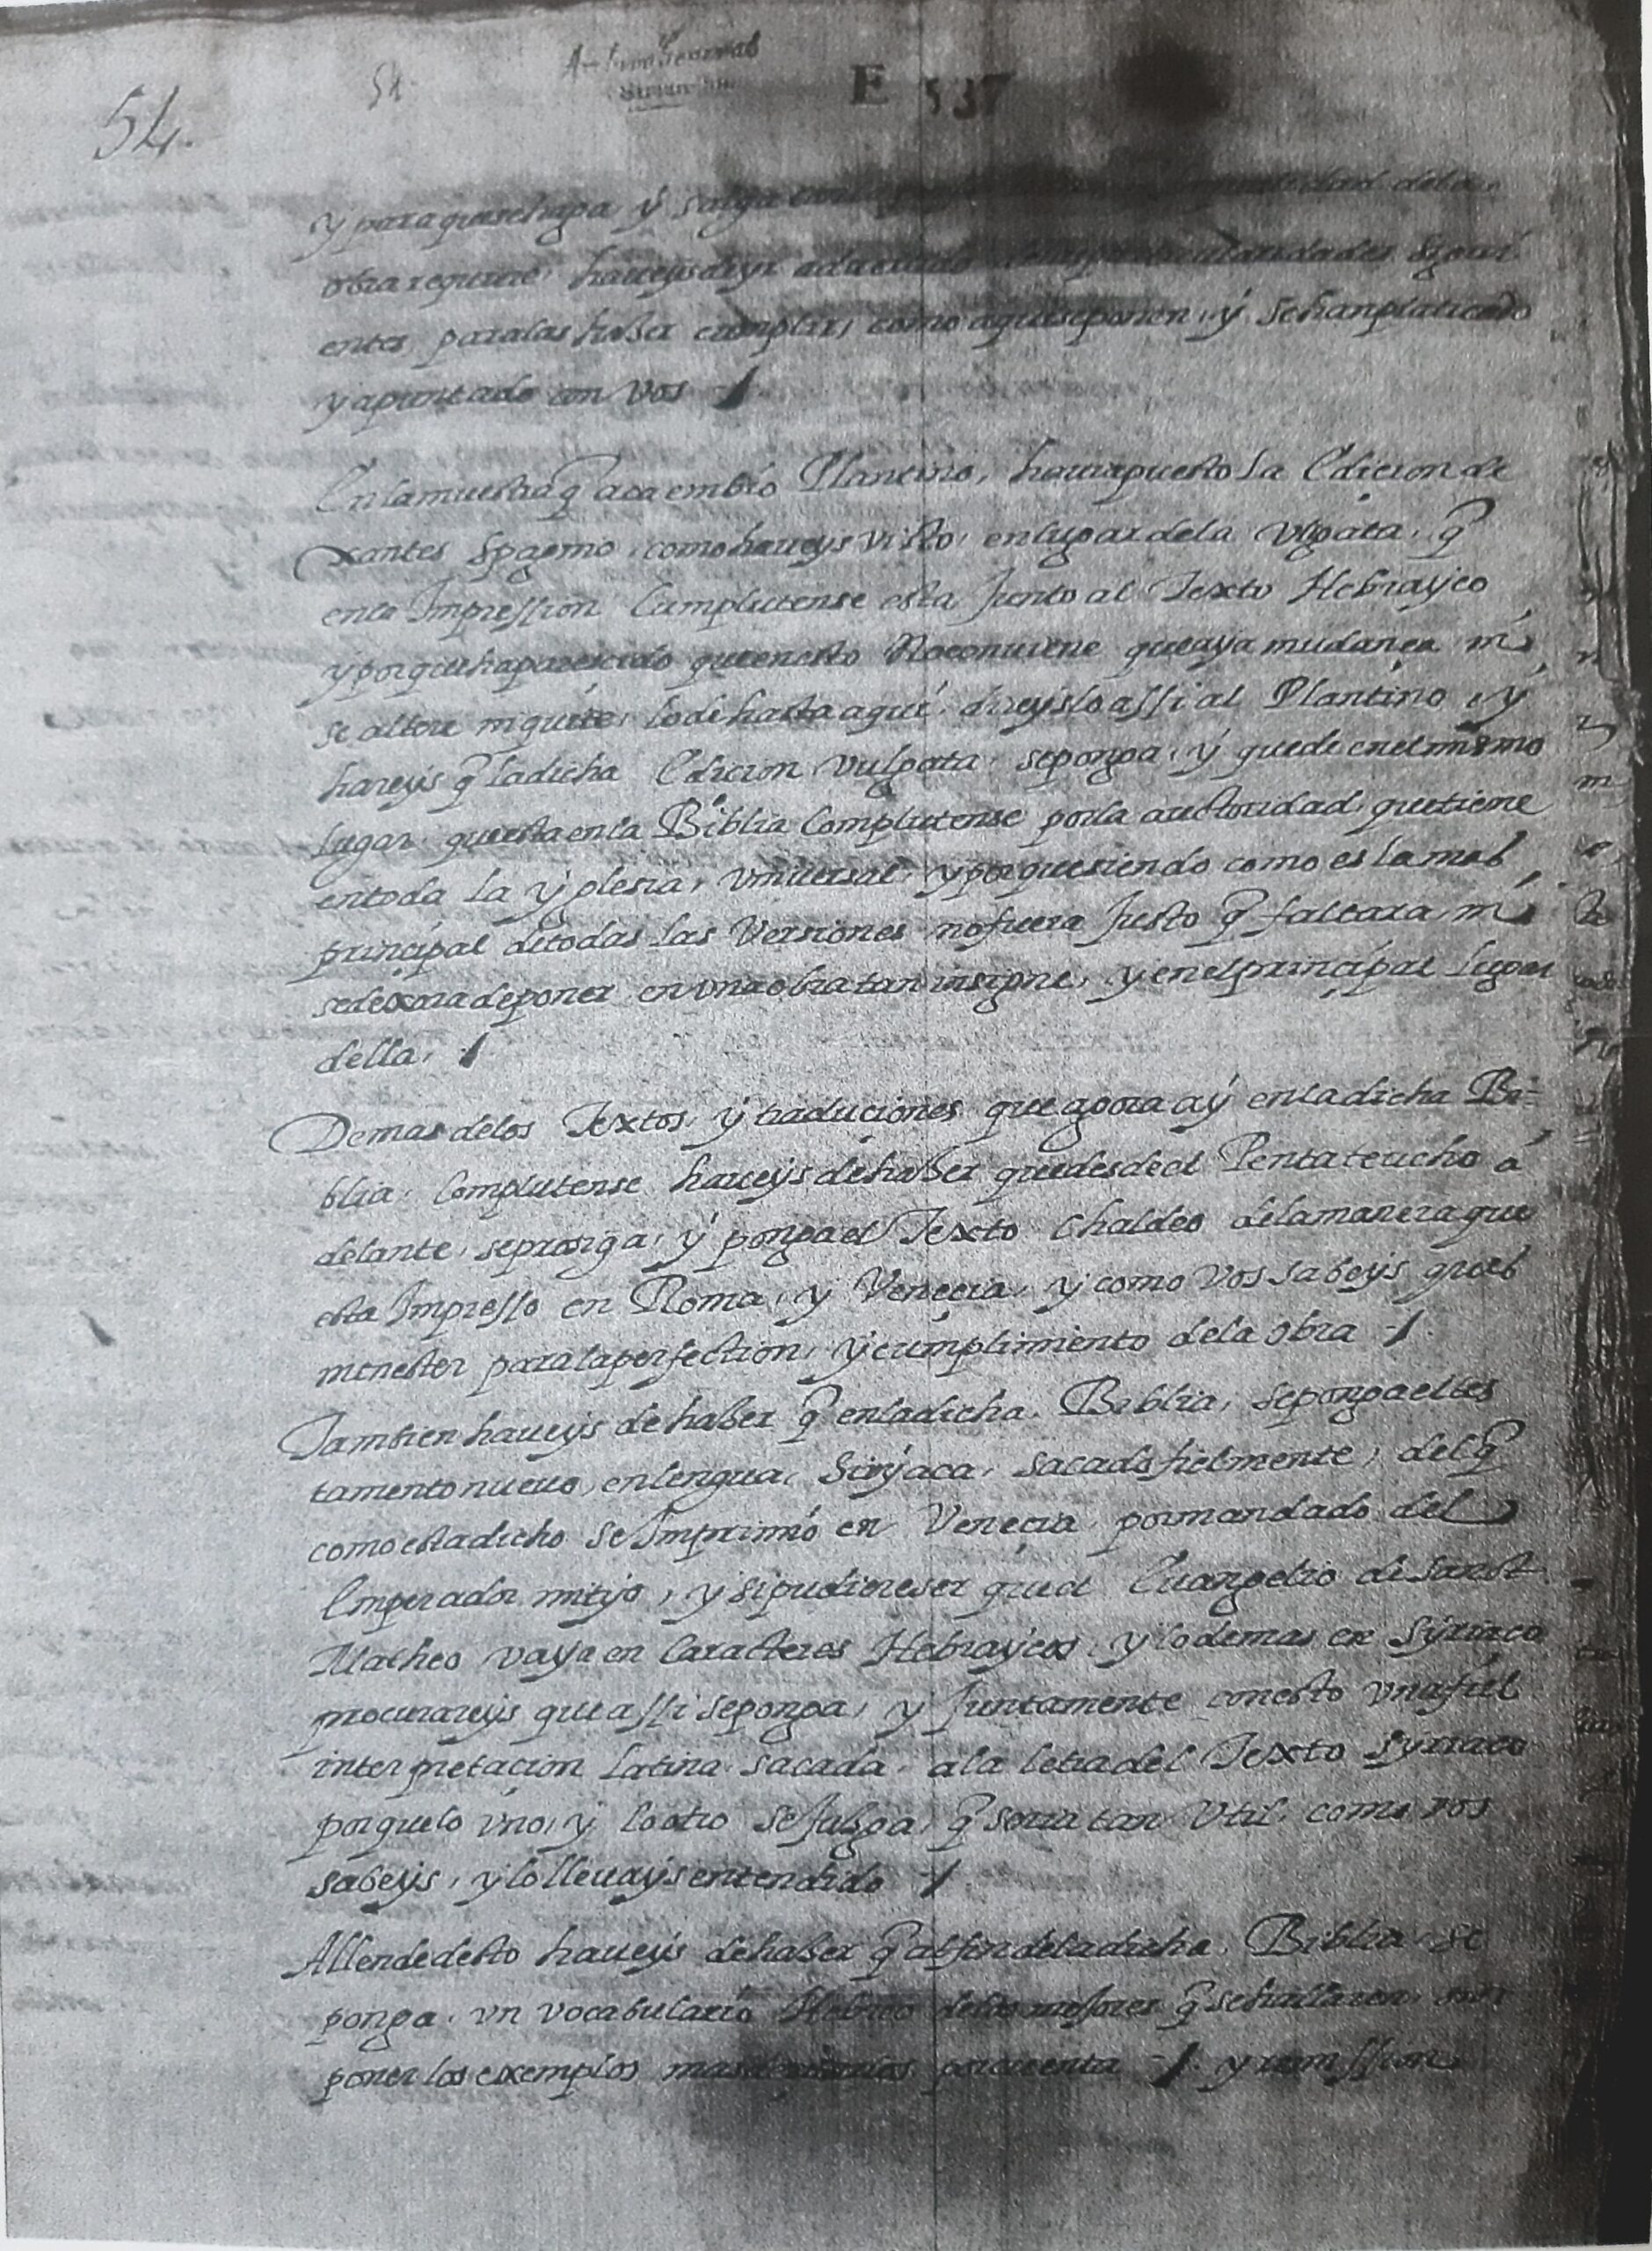 54.
54.
E 537
y para que se haga y salga con dad dela
obra requiere, haueys de yr aduertido particularidades sigui
entes para las hazer cumplir, como aqui se ponen, y se han platicado
y apuntado con vos
En la muestra q̃ aca embió Plantino, hauia puesto La Edicion de
xantes Spagmo, como haueys visto, en lugar dela vlgata, q̃
en la Impression Complutense esta Junto al Texto Hebrayco
y porque ha parescido que en esto No conuiene que aya mudança ni
se altere ni quite, lo de hasta aqui, direyslo assi al Plantino, y
hareys q̃ la dicha Edicion Vulgata, se ponga, y quede en el mismo
lugar, que esta en la Biblia Complutense por la auctoridad, que tiene
en toda La yglesia, vniuersal, y porque siendo como es la mas
principal de todas las Versiones no fuera Justo q̃ faltara, ni
se dexara de poner en vna obra tan insigne, y en el principal Lugar
della,
Demas delos Textos, y traduciones que agora ay en la dicha Bi-
blia, Complutense haueys de hazer que desde el Pentateucho a
delante, se prosiga, y ponga el Texto Chaldeo dela manera que
esta Impresso en Roma, y Venecia, y como Vos sabeys que es
menester para la perfection, y cumplimiento dela obra
Tambien haueys de hazer q̃ en la dicha, Biblia, se ponga el tes
tamento nueuo, en lengua, Siryaca, sacado fielmente, del q̃
como esta dicho se Imprimió en Venecia, por mandado del
Emperador mi tyo, y si pudiere ser que el Euangelio de sanct
Matheo vaya en Caracteres Hebraycos, y lo demas en Syriaco
procurareys que assi se ponga, y Juntamente con esto vna fiel
interpretacion Latina sacada, ala letra del Texto Syriaco
porque lo vno, y lo otro se Juzga, q̃ sera tan Vtil, como vos
sabeys, y lo lleuays entendido
Allende desto haueys de hazer q̃ al fin de la dicha, Biblia se
ponga, vn vocabulario Hebreo delos mejores q̃ se hallaren, con
poner los exemplos mas por cuenta y